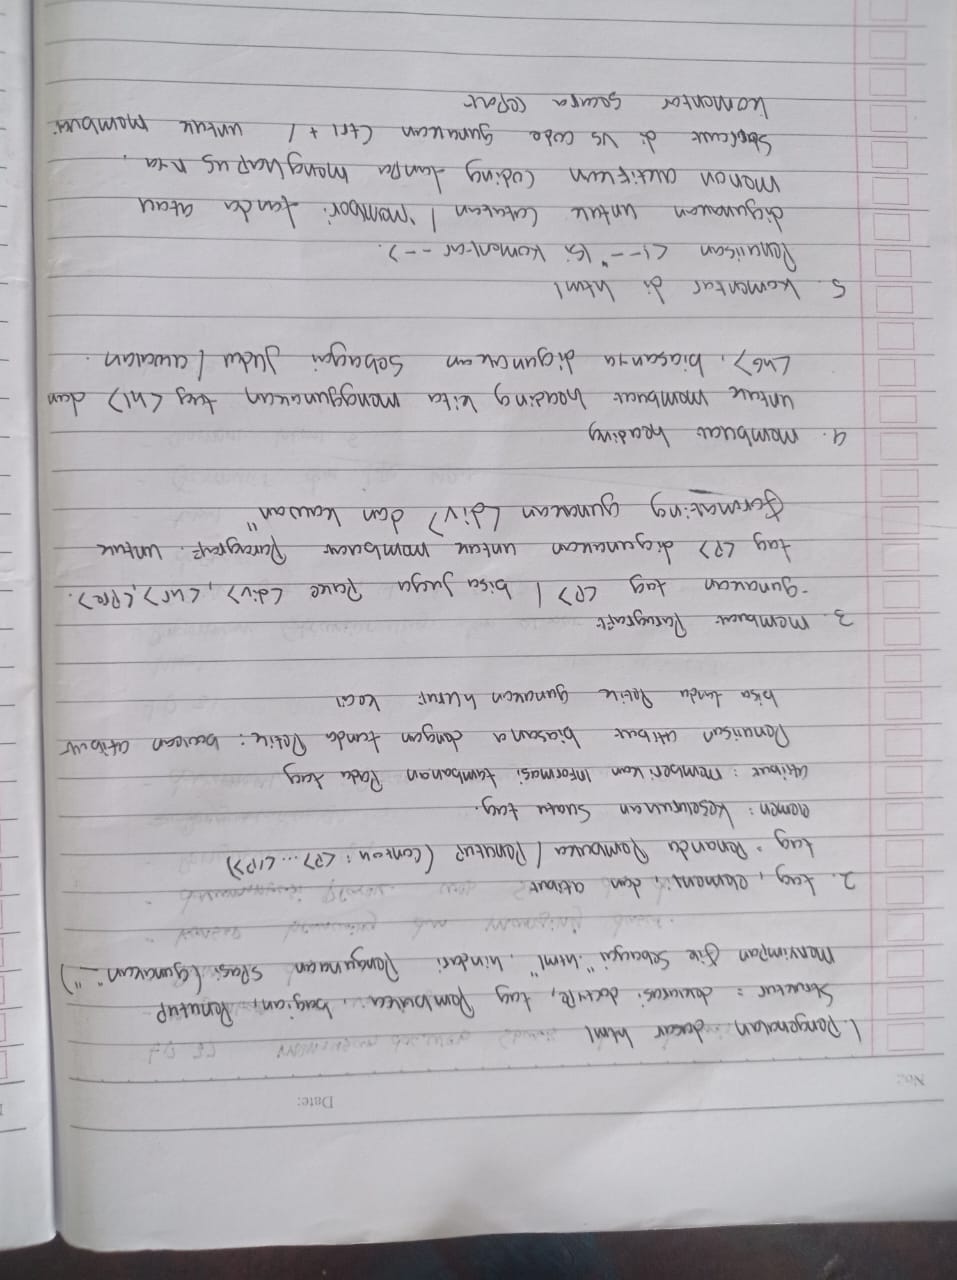 No.:
Date:
1. Pengenalan dasar html
Struktur : deklarasi doctype, tag Pembuka, bagian, Penutup
Menyimpan file Sebagai ".html". hindari Penggunaan spasi (gunakan "_")
2. tag, element, dan atibut
tag : Penanda Pembuka / Penutup (contoh : <P> ... </P>)
elemen : keseluruhan suatu tag.
atibut : memberikan informasi tambahan Pada tag
Penulisan atibut biasana dengan tanda Petik : bacaan atibut
bisa tanda Petik gunakan huruf kecil
3. membuat Paragraft
- gunakan tag <P> / bisa juga Pake <div>, <hr>, <Pre>.
tag <P> digunakan untuk membuat Paragraf. untuk
formating gunakan <div> dan kawan"
4. membuat heading
untuk membuat heading kita menggunakan tag <h1> dan
<h6>, biasanya digunakan sebagai Judul / awalan.
5. komentar di html
Penulisan <!-- "isi komentar -->.
digunakan untuk Catatan / memberi tanda atau
menon aktifkan coding tanpa menghapus nya.
Shortcut di VS Code gunakan Ctrl + / untuk membuat
komentar secara cepat